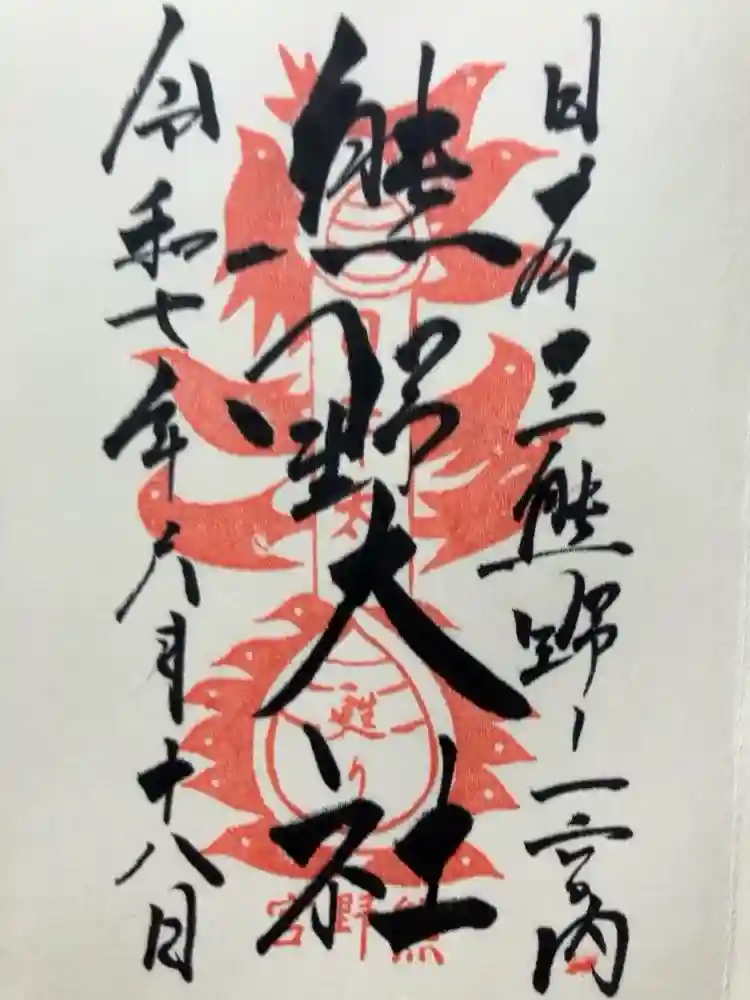 日本三熊野ノ一宮内
熊野大社
令和七年六月十八日
日本太
甦り
熊野宮